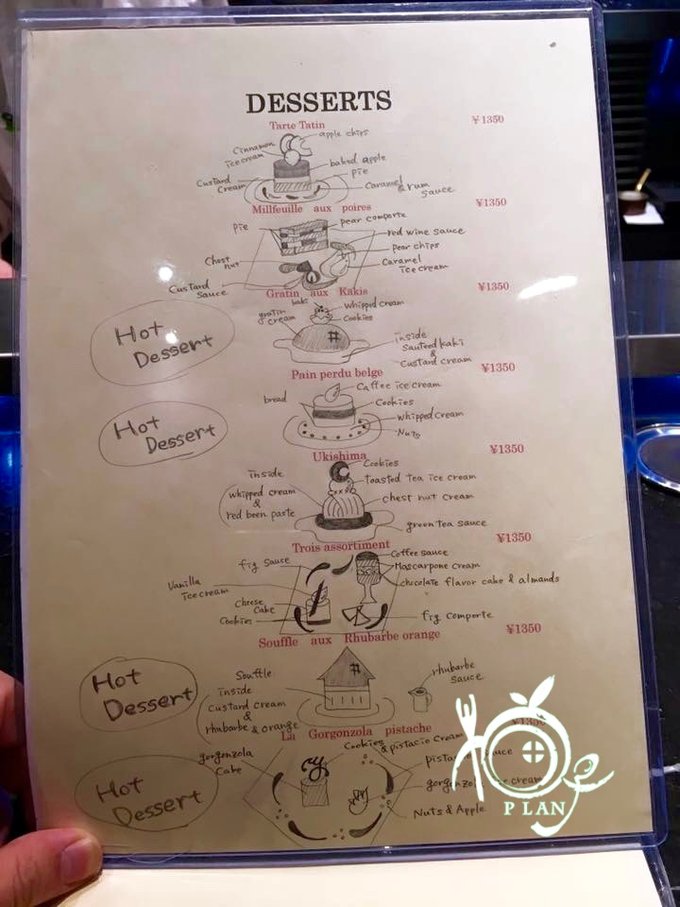 DESSERTS
Tarte Tatin ¥1350
apple chips
Cinnamon
ice cream
baked apple
pie
Custard
Cream
Caramel
& rum
sauce
Millfeuille aux poires ¥1350
pie
pear comporte
red wine sauce
pear chips
Chest
nut
Caramel
ice cream
Custard
Sauce
Gratin aux Kakis ¥1350
Hot
Dessert
kaki
whipped cream
gratin
cream
Cookies
inside
Sauteed kaki
&
Custard cream
Pain perdu belge ¥1350
Hot
Dessert
Caffee ice cream
bread
Cookies
whipped cream
Nuts
Ukishima ¥1350
Cookies
inside
toasted tea ice cream
whipped cream
&
red been paste
chest nut cream
green tea sauce
Trois assortiment ¥1350
Coffee sauce
fig sauce
Mascarpone cream
chocolate flavor cake & almands
Vanilla
ice cream
Cheese
Cake
Cookies
fig comporte
Souffle aux Rhubarbe orange ¥1350
Hot
Dessert
Souffle
rhubarbe
sauce
inside
custard cream
&
rhubarbe & orange
La Gorgonzola pistache ¥1350
Hot
Dessert
Cookies
& pistacio cream
gorgonzola
cake
Nuts & Apple
PLAN